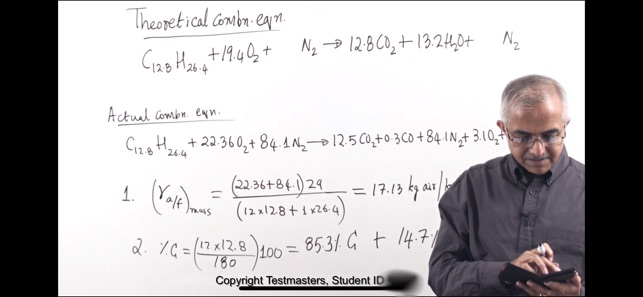 Theoretical combn. eqn.
C12.8H26.4 + 19.4O2 + N2 → 12.8CO2 + 13.2H2O + N2
Actual combn. eqn.
C12.8H26.4 + 22.36O2 + 84.1N2 → 12.5CO2 + 0.3CO + 84.1N2 + 3.1O2 +
1. (ra/f)mass = (22.36+84.1)29 / (12×12.8 + 1×26.4) = 17.13 kg air/
2. %C = (12×12.8 / 180)100 = 85.3% C + 14.7%
Copyright Testmasters, Student ID